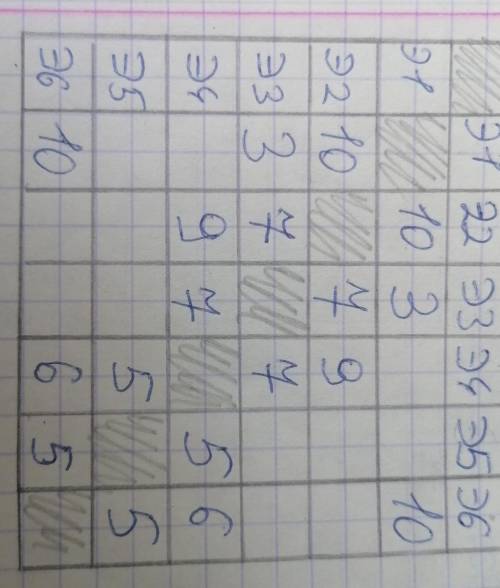 Э1 Э2 Э3 Э4 Э5 Э6
Э1 10 3 10
Э2 10 7 9
Э3 3 7 7
Э4 9 7 5 6
Э5 5 5
Э6 10 6 5